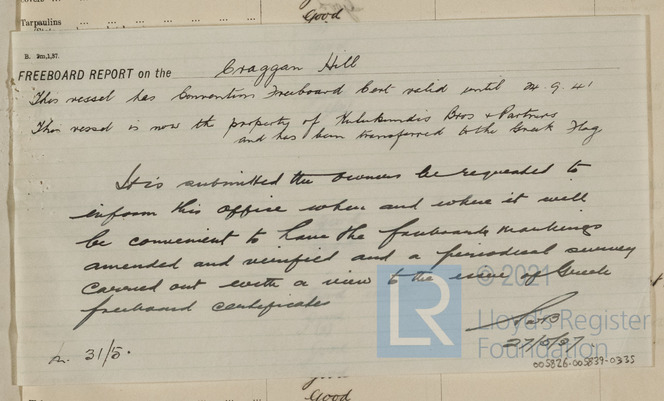 Tarpaulins
Good
B. 2m,1,37.
FREEBOARD REPORT on the Craggan Hill
This vessel has Convention Freeboard Cert valid until 9. 41
This vessel is now the property of Kulukundis Bros & Partners
and has been transferred to the Greek Flag
It is submitted the owners be requested to
inform this office when and where it will
be convenient to have the freeboard markings
amended and verified and a periodical survey
carried out with a view to the issue of Greek
freeboard certificates
27/5/37.
31/5.
LR
© 2021
Lloyd's Register
Foundation
005826-005839-0335
Good